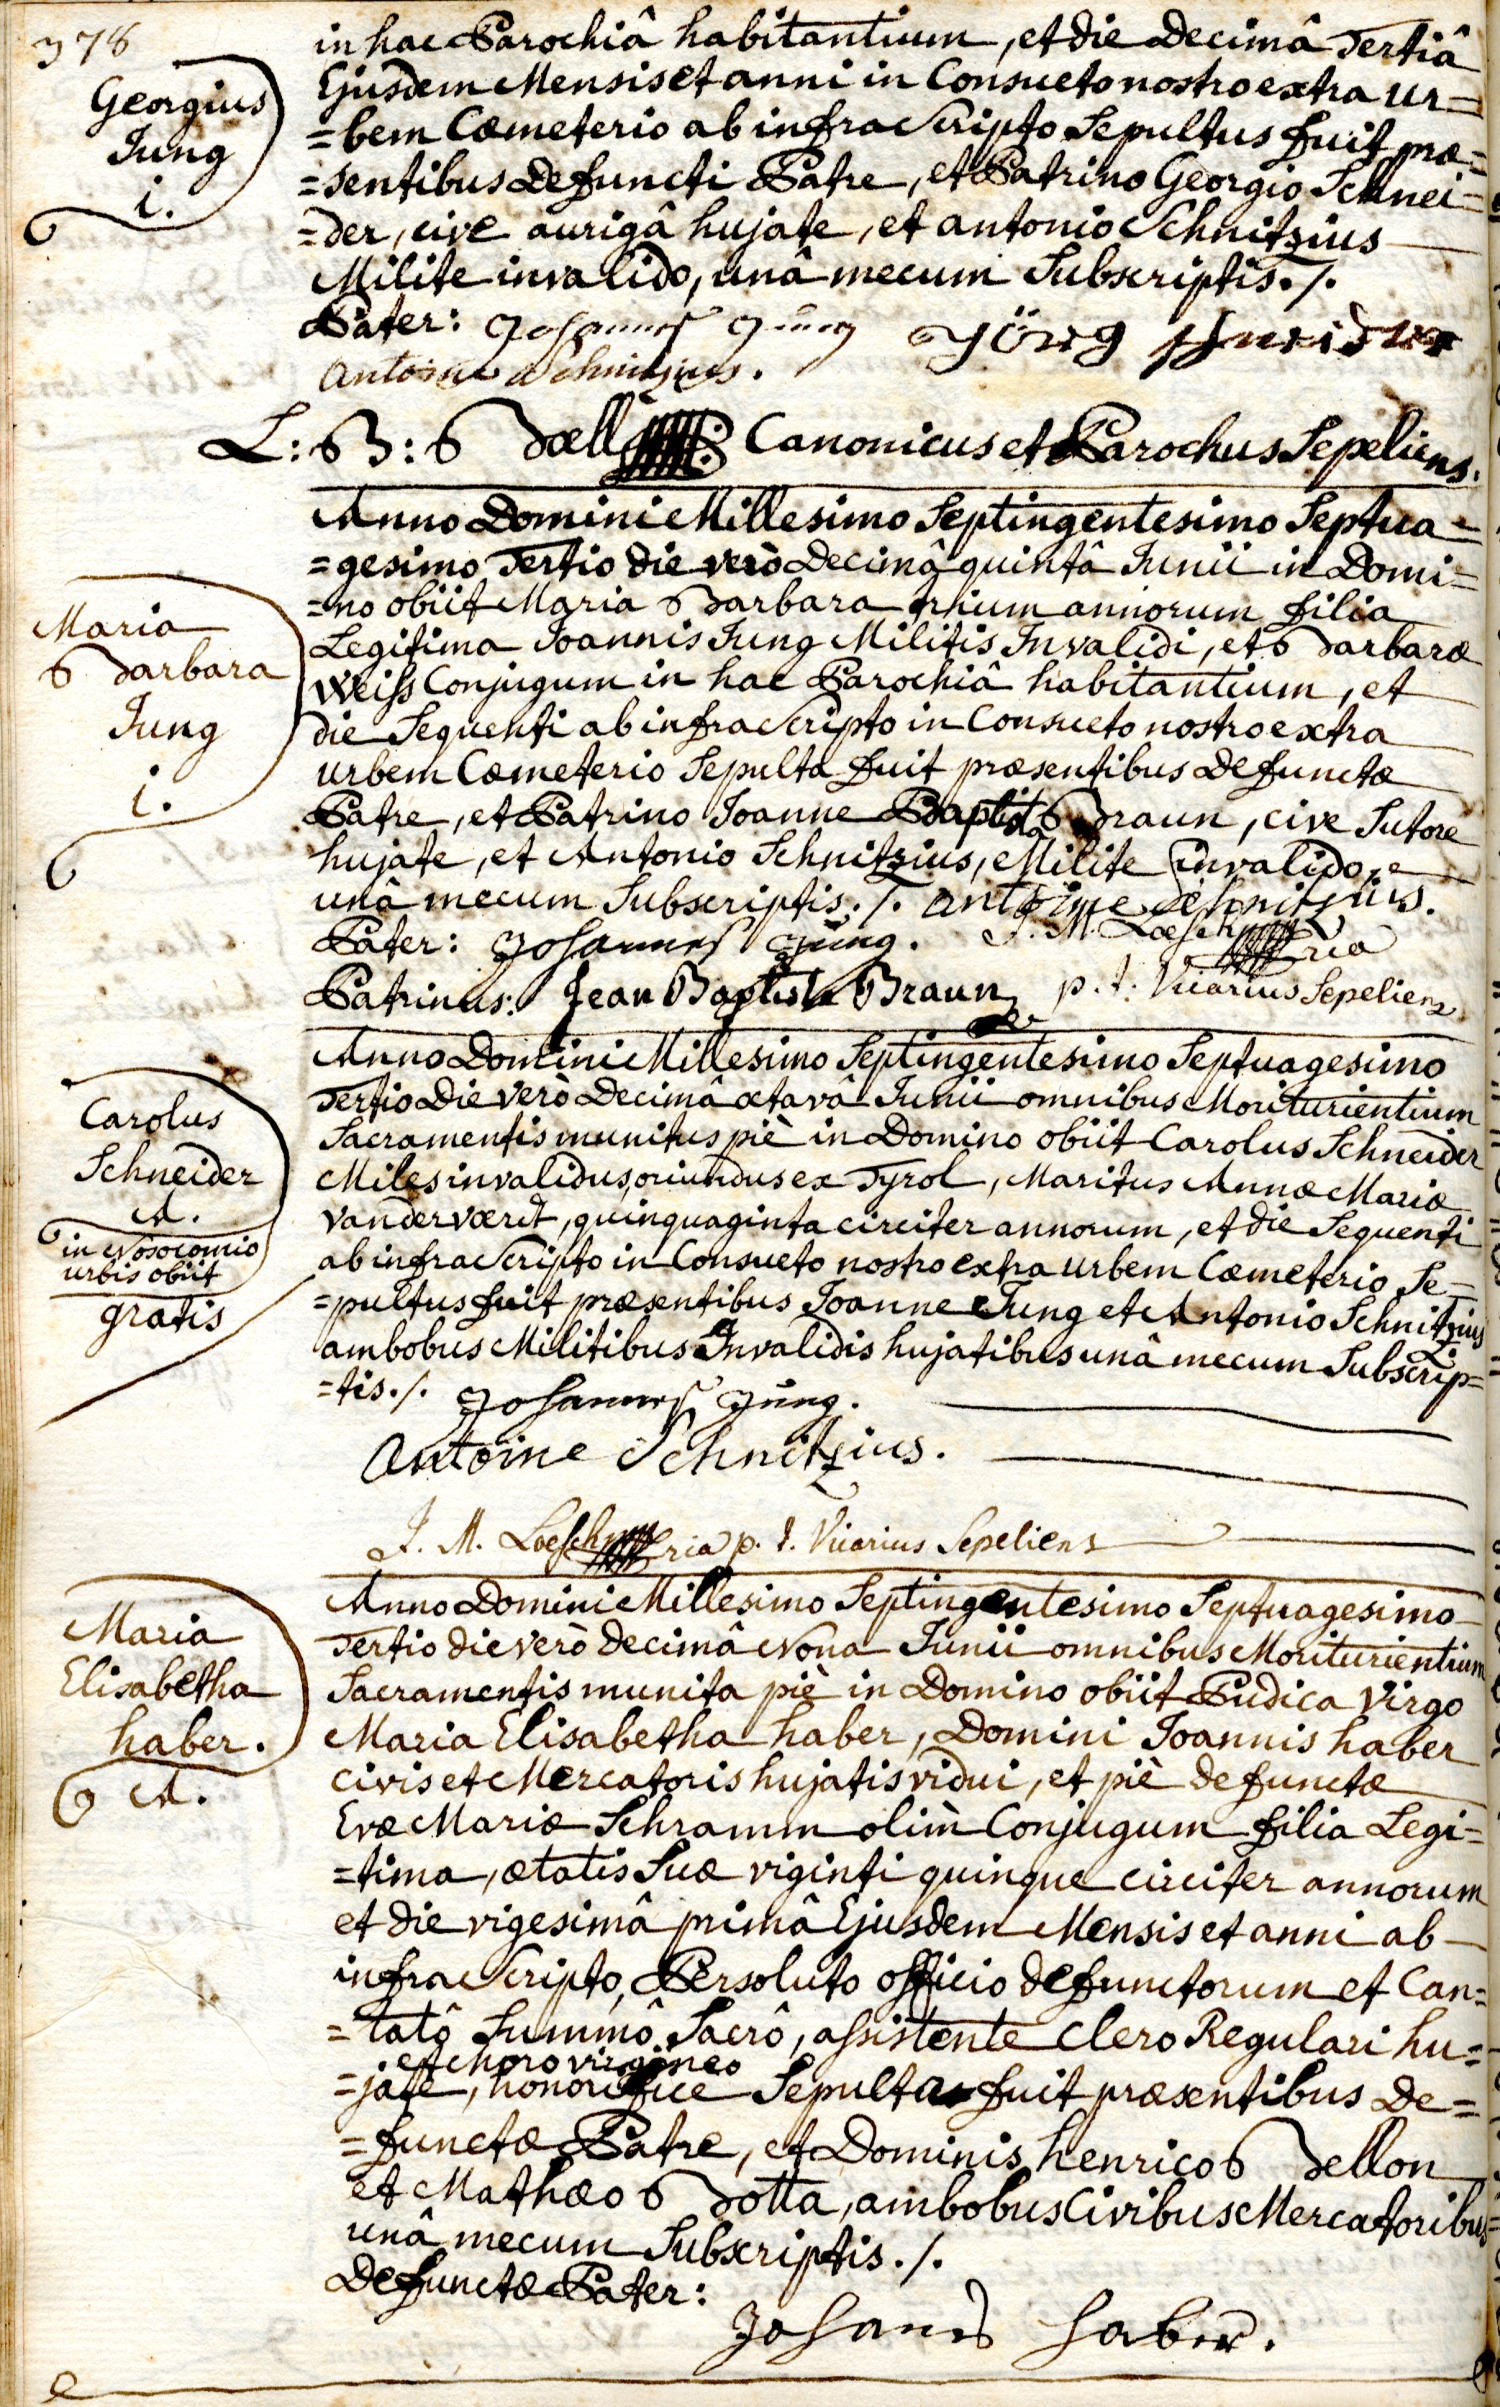 378
Georgius
Jung
i.
in hac Parochiâ habitantium, et die Decimâ Tertiâ
Ejusdem Mensis et anni in Consueto nostro extra ur=
=bem Cœmeterio ab infra Scripto Sepultus fuit præ=
=sentibus Defuncti Patre, et Patrino Georgio Schnei=
=der, cive aurigâ hujate, et antonio Schnitzius
Milite invalido, unâ mecum Subscriptis./.
Pater: Johannes Jung Jörg Schneider
Antoine Schnitzius.
L: B: Boell Canonicus et Parochus Sepeliens.
Maria
Barbara
Jung
i.
Anno Domini Millesimo Septingentesimo Septua=
=gesimo Tertio die verò Decimâ quintâ Junii in Domi=
=no obiit Maria Barbara trium annorum filia
Legitima Joannis Jung Militis Invalidi, et Barbaræ
Weiss Conjugum in hac Parochiâ habitantium, et
die Sequenti ab infra Scripto in Consueto nostro extra
urbem Cœmeterio Sepulta fuit præsentibus Defunctæ
Patre, et Patrino Joanne Baptista Braun, cive Sutore
hujate, et Antonio Schnitzius, Milite invalido,
unâ mecum Subscriptis./. Antoine Schnitzius.
Pater: Johannes Jung. J. M. Loesch
Patrinus: Jean Baptiste Braun p. t. Vicarius Sepeliens
Carolus
Schneider
A.
in Nosocomio
urbis obiit
gratis
Anno Domini Millesimo Septingentesimo Septuagesimo
Tertio Die verò Decimâ octavâ Junii omnibus Moriturientium
Sacramentis munitus piè in Domino obiit Carolus Schneider
Miles invalidus, oriundus ex Tyrol, Maritus Annæ Mariæ
, quinquaginta circiter annorum, et die Sequenti
ab infra Scripto in Consueto nostro extra urbem Cœmeterio Se=
=pultus fuit præsentibus Joanne Jung et Antonio Schnitzius
ambobus Militibus Invalidis hujatibus unâ mecum Subscrip=
=tis./. Johannes Jung.
Antoine Schnitzius.
J. M. Loesch p. t. Vicarius Sepeliens
Maria
Elisabetha
haber.
A.
Anno Domini Millesimo Septingentesimo Septuagesimo
Tertio die verò Decimâ Nona Junii omnibus Moriturientium
Sacramentis munita piè in Domino obiit Pudica Virgo
Maria Elisabetha haber, Domini Joannis haber
civis et Mercatoris hujatis vidui, et piè defunctæ
Evæ Mariæ Schramm olim Conjugum filia Legi=
=tima, ætatis Suæ viginti quinque circiter annorum
et die vigesimâ primâ Ejusdem Mensis et anni ab
infra Scripto, Persoluto officio defunctorum et Can=
=tatô Summô Sacrô, assistente Clero Regulari hu=
et choro virgineo
=jate, honorifice Sepulta fuit præsentibus De=
=functæ Patre, et Dominis henrico Bellon
et Mathæo Botta, ambobus Civibus Mercatoribus
unâ mecum Subscriptis./.
Defunctæ Pater:
Johanes haber.